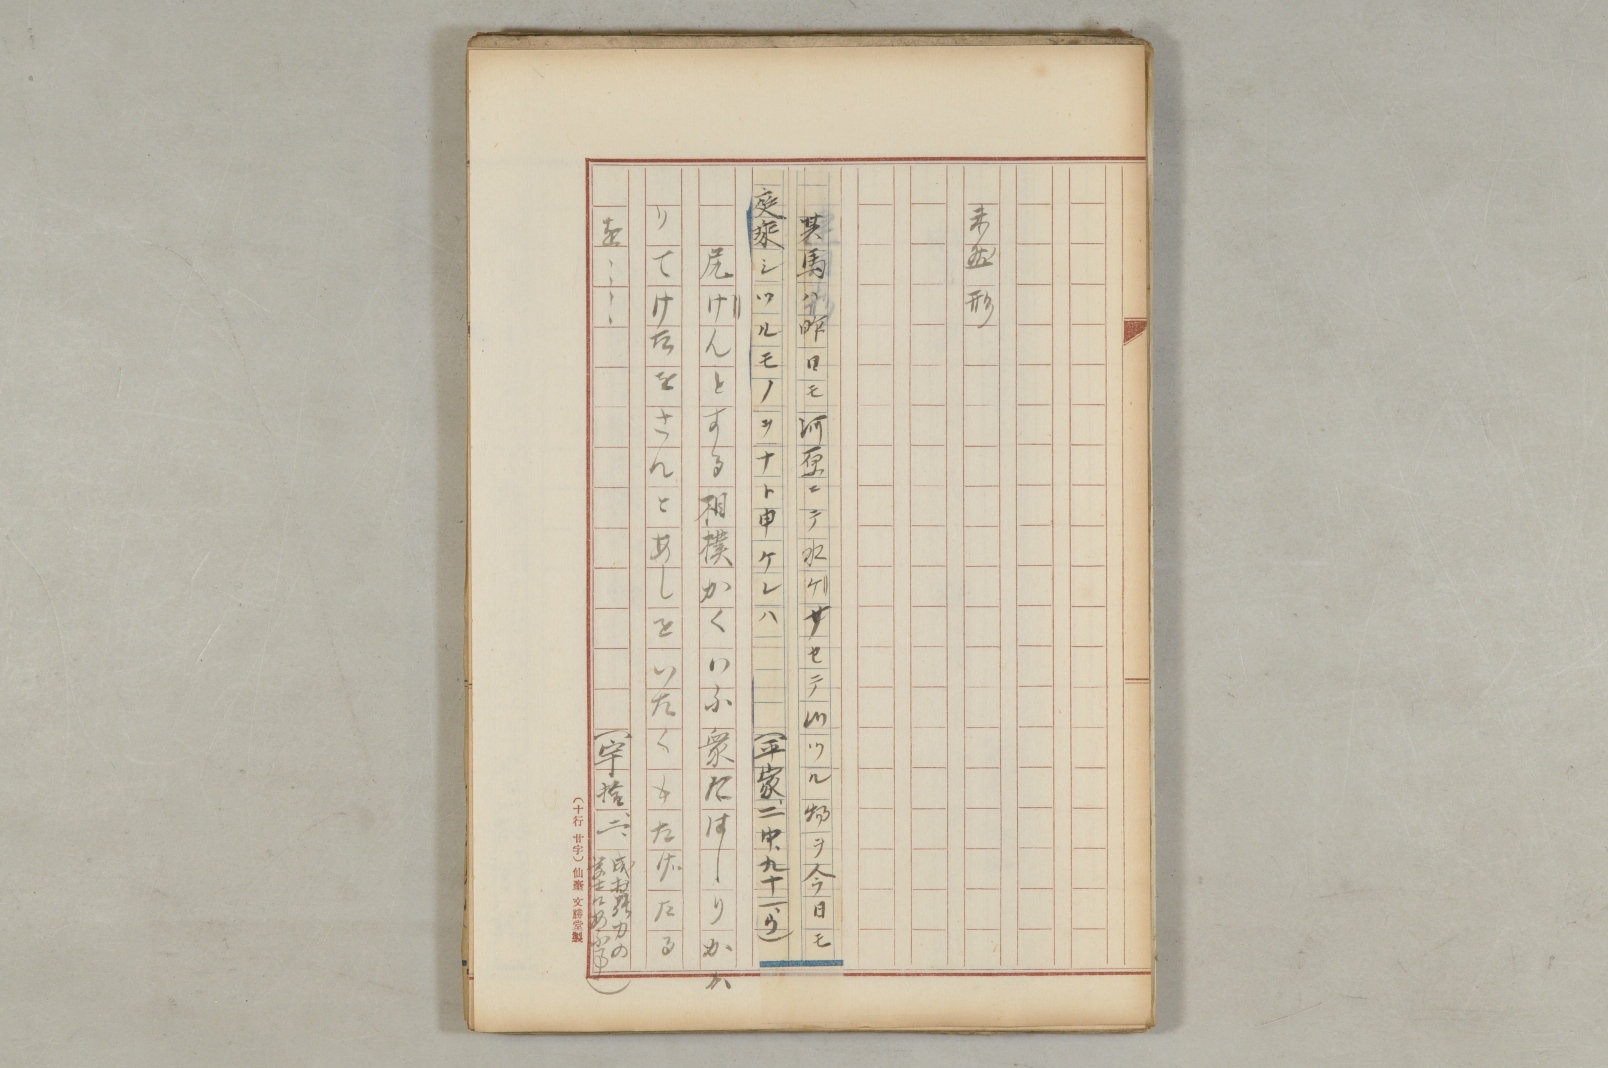 未然形
其馬ハ昨日モ河原ニテ水ケサセテ川ツル物ヲ今日モ
庭乘シツルモノヲナト申ケレハ
(平家、二中、九十一、ウ)
尻けんとする相撲かくいふ衆たはしりかゝ
りてけたをさんとあしをいたくもたげたる
を、、、、
(宇拾二、成村強力の学士にあふ事)
(十行 廿字) 仙臺 文勝堂製